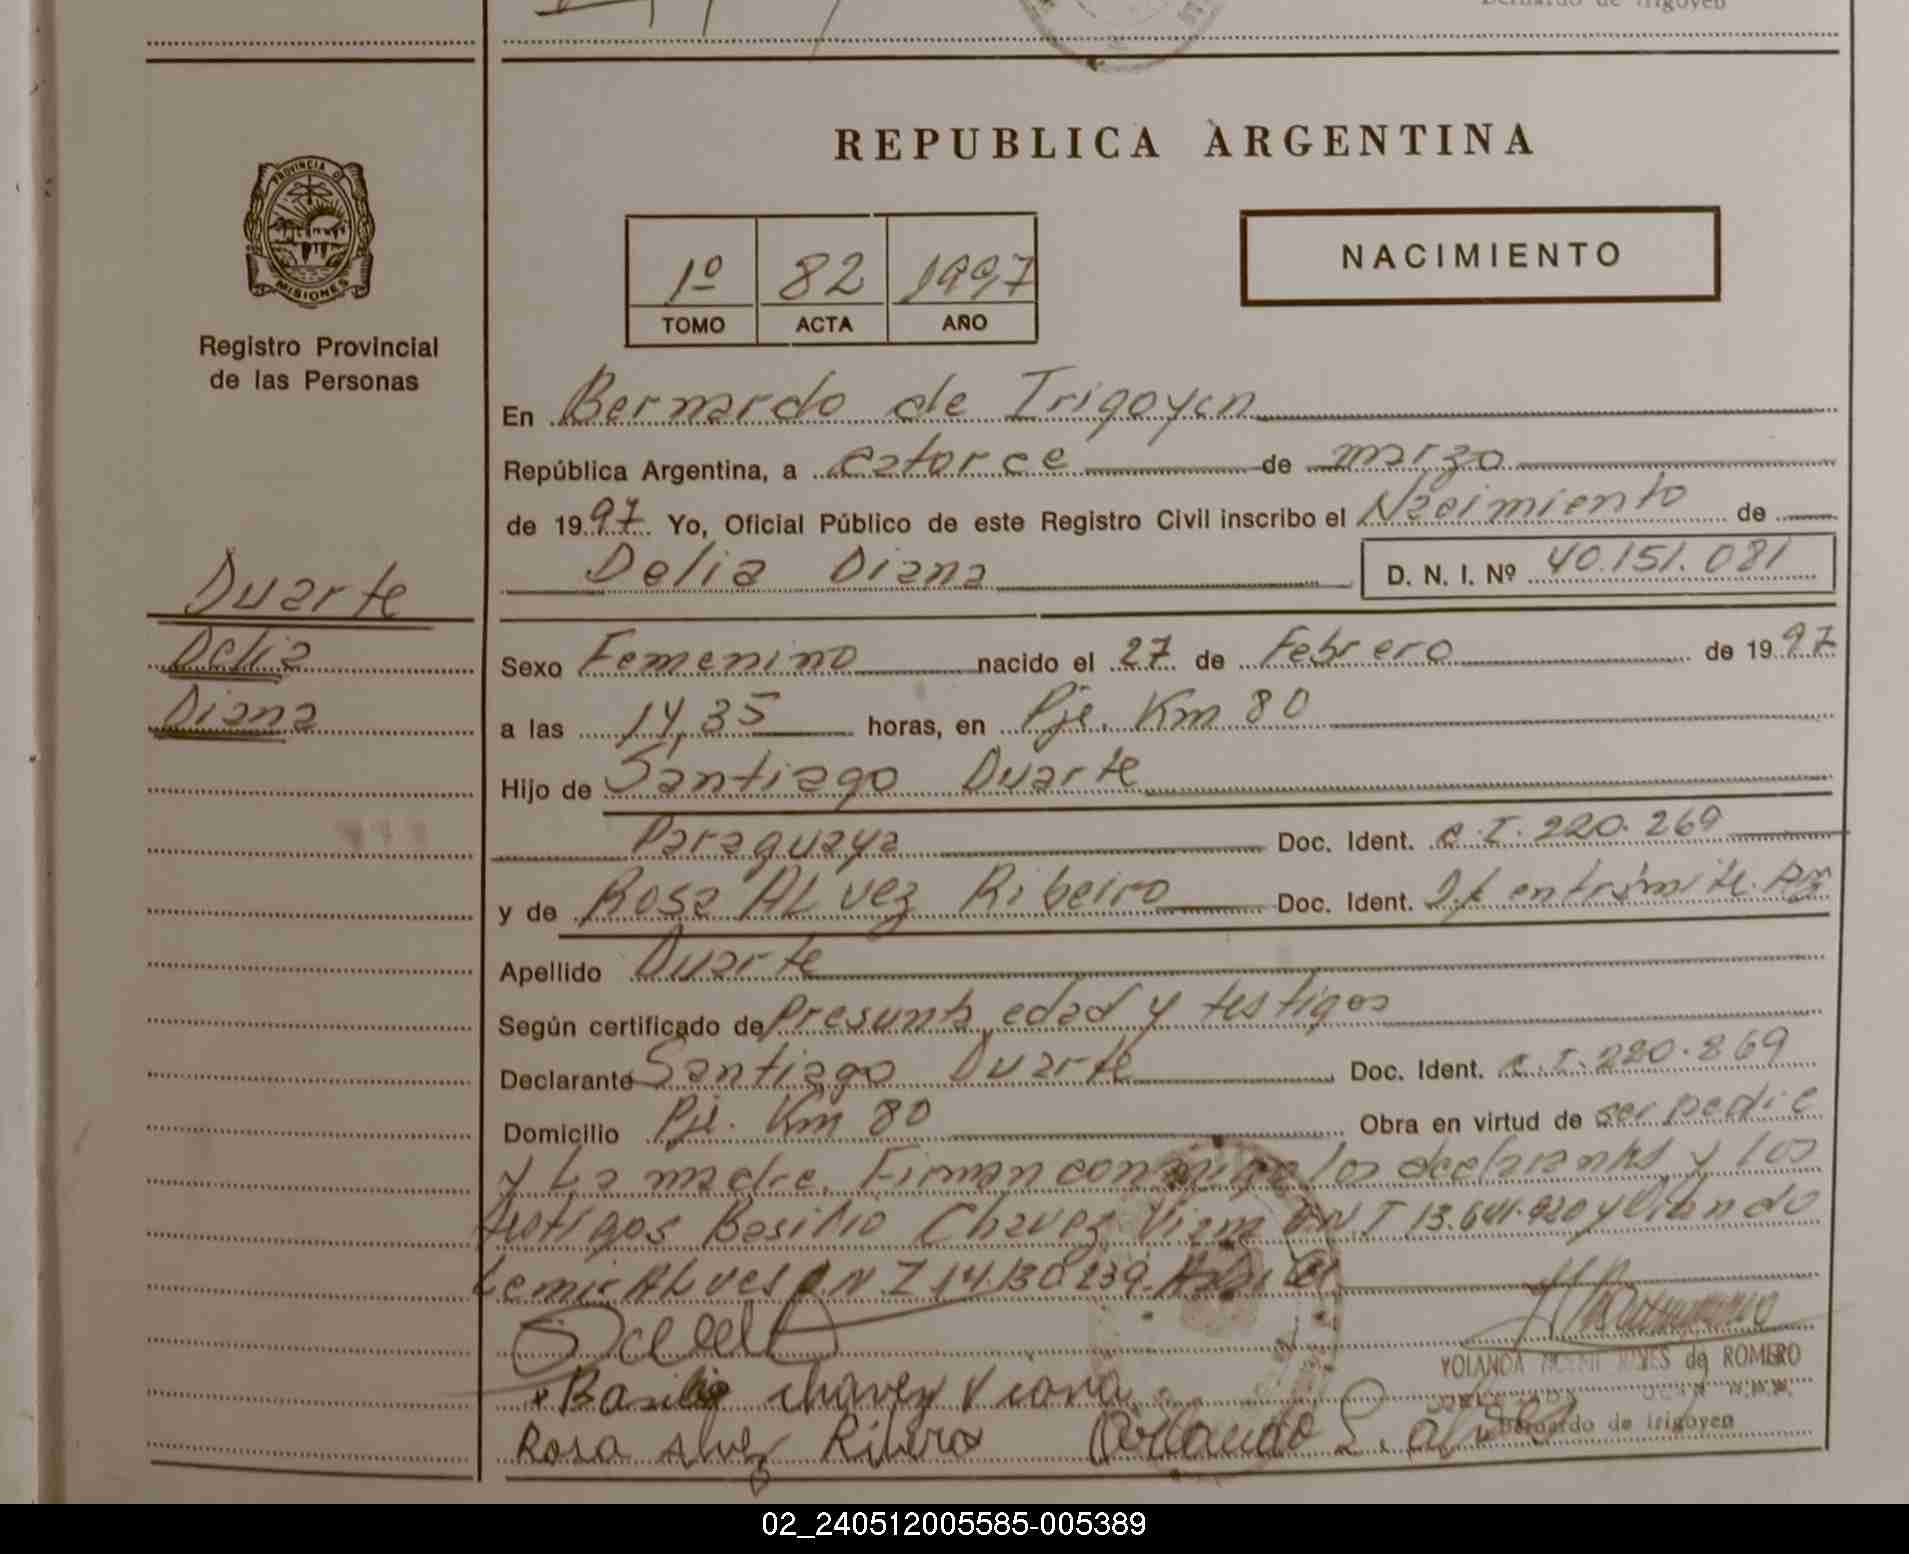 Bernardo de Irigoyen
REPUBLICA ARGENTINA
PROVINCIA DE
MISIONES
Registro Provincial
de las Personas
1º 82 1997
TOMO ACTA AÑO
NACIMIENTO
En Bernardo de Irigoyen
República Argentina, a catorce de marzo
de 1997 Yo, Oficial Público de este Registro Civil inscribo el Nacimiento de
Delia Diana D. N. I. Nº 40.151.081
Duarte
Delia
Diana
Sexo Femenino nacido el 27 de Febrero de 1997
a las 14,35 horas, en Pje. Km 80
Hijo de Santiago Duarte
Paraguaya Doc. Ident. C.I. 220.269
y de Rosa ALvez Ribeiro Doc. Ident. en trámite
Apellido Duarte
Según certificado de Presunta edad y testigos
Declarante Santiago Duarte Doc. Ident. C.I. 220.269
Domicilio Pje. Km 80 Obra en virtud de ser padre
y La madre. Firman conmigo los declarantes y los
testigos Basilio Chavez Viana DNI 13.641.920 y Orlando
ALves DNI 14.130.239
Basilio Chavez Viana
Rosa Alvez Ribero Orlando L.
YOLANDA de ROMERO
Bernardo de Irigoyen
02_240512005585-005389